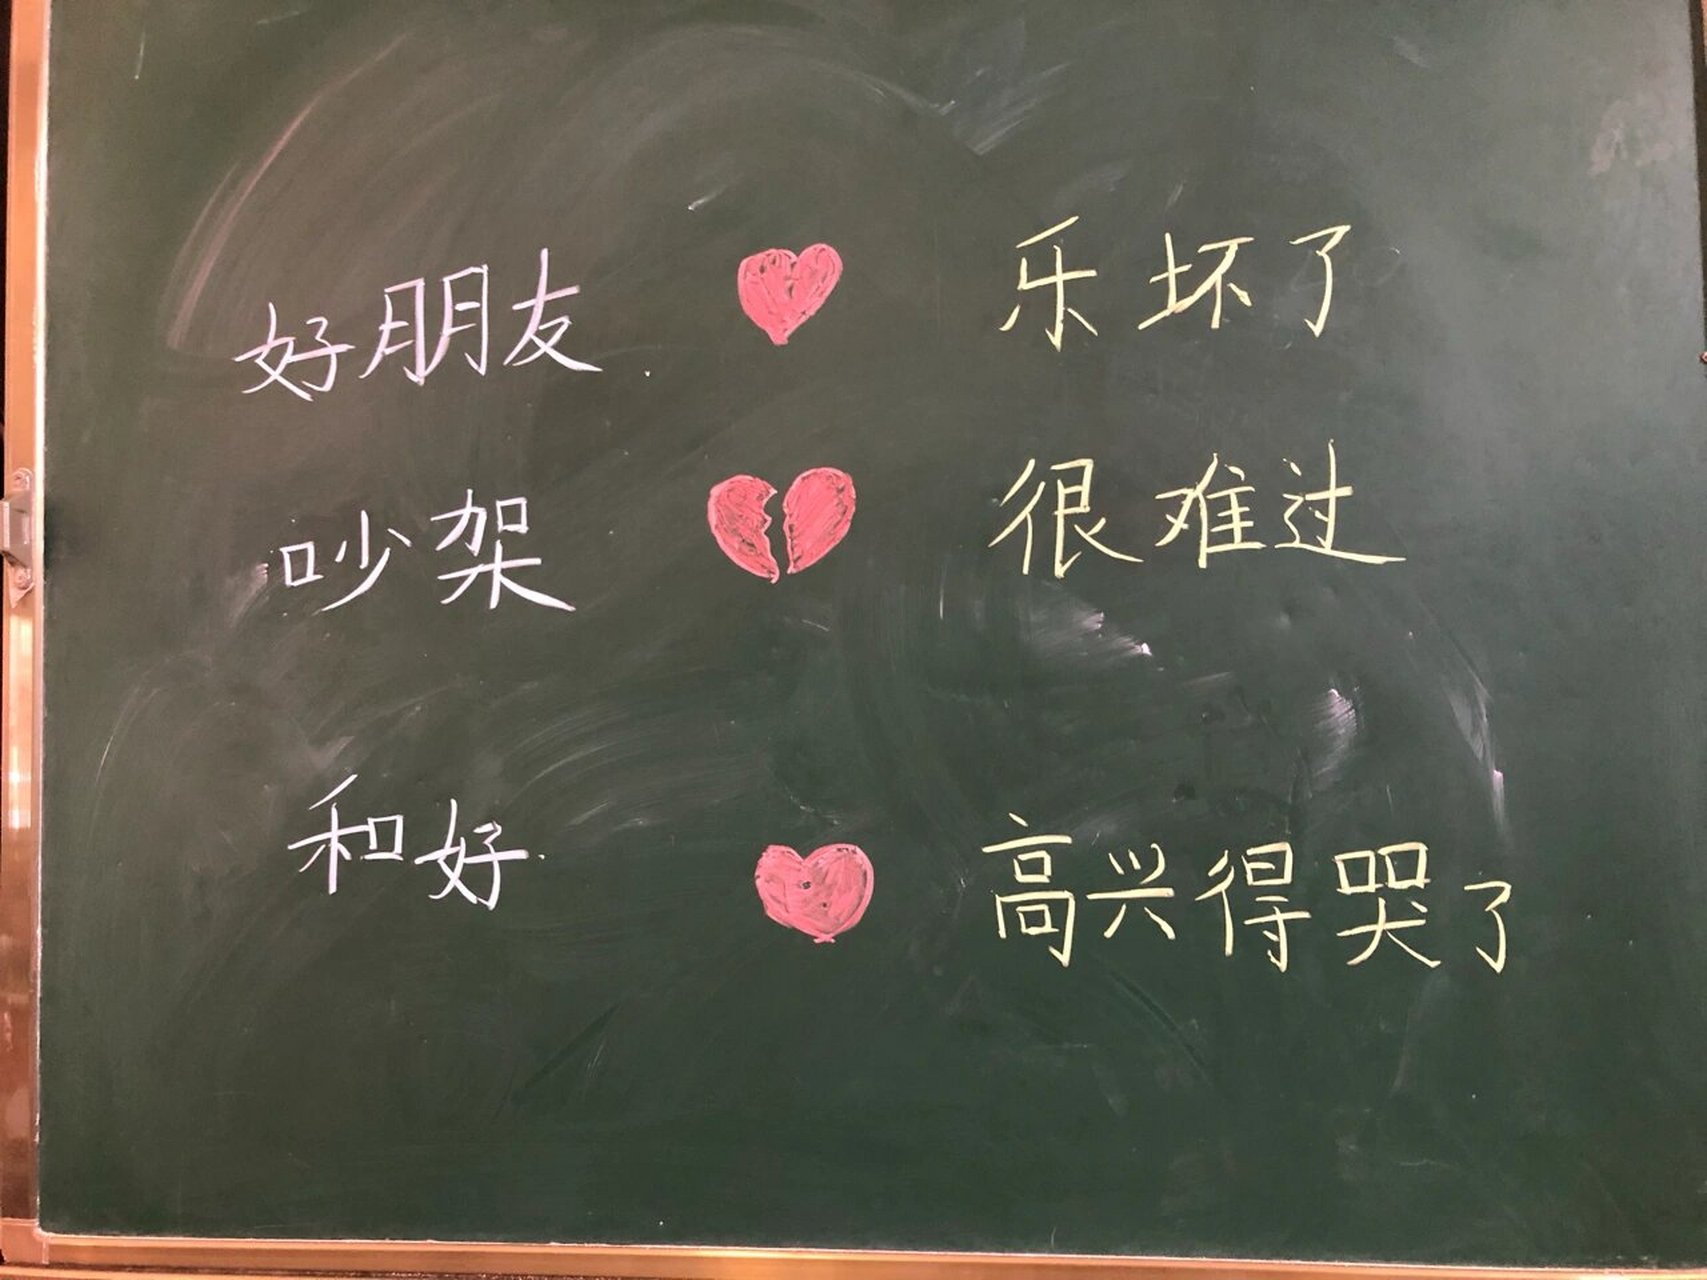 好朋友 乐坏了
吵架 很难过
和好 高兴得哭了